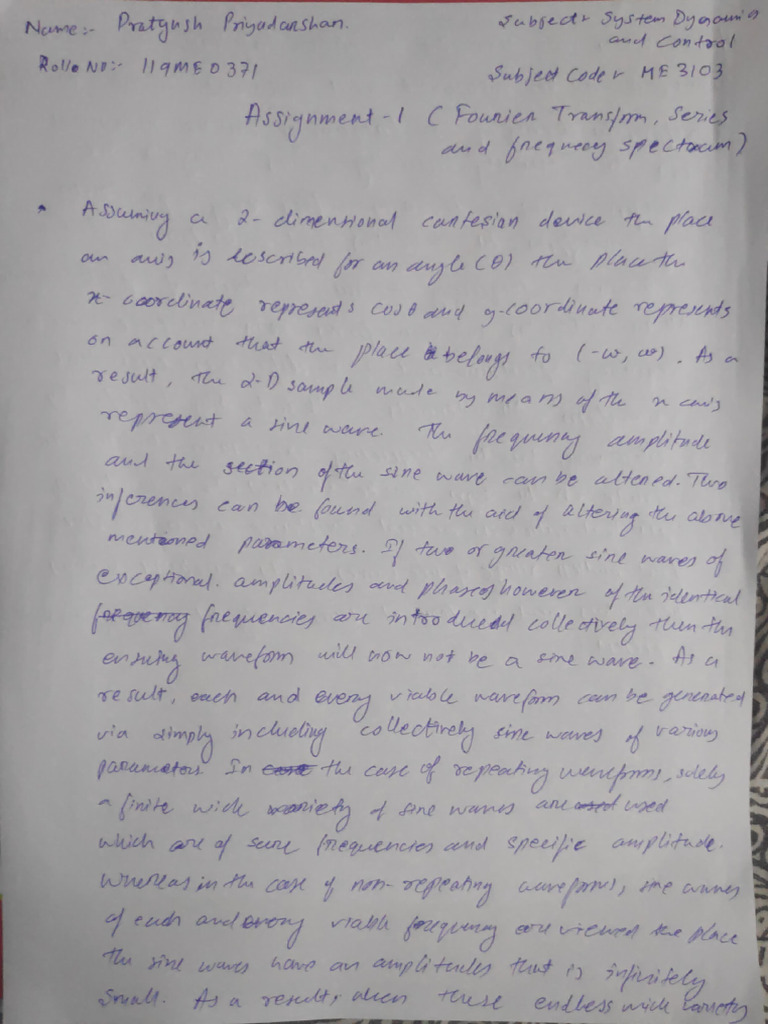 Name:- Pratyush Priyadarshan.
Subject:- System Dynamics
and Control
Rollo No:- 119ME0371
Subject Code:- ME3103
Assignment-1 (Fourier Transform, Series
and frequency spectrum)
Assuming a 2-dimentional cartesian device the place
an axis is described for an angle (θ) the place the
x-coordinate represents cosθ and y-coordinate represents
on account that the place belongs to (-∞, ∞). As a
result, the 2-D sample made by means of the x axis
represent a sine wave. The frequency amplitude
and the section of the sine wave can be altered. Two
inferences can be found with the aid of altering the above
mentioned parameters. If two or greater sine waves of
exceptional. amplitudes and phases however of the identical
frequencies are introduced collectively then the
ensuing waveform will now not be a sine wave. As a
result, each and every viable waveform can be generated
via simply including collectively sine waves of various
parameters. In the case of repeating waveforms, solely
a finite wide variety of sine waves are used
which are of sure frequencies and specific amplitude.
Whereas in the case of non-repeating waveforms, sine waves
of each and every viable frequency are viewed the place
the sine waves have an amplitudes that is infinitely
small. As a result, when these endless wide variety